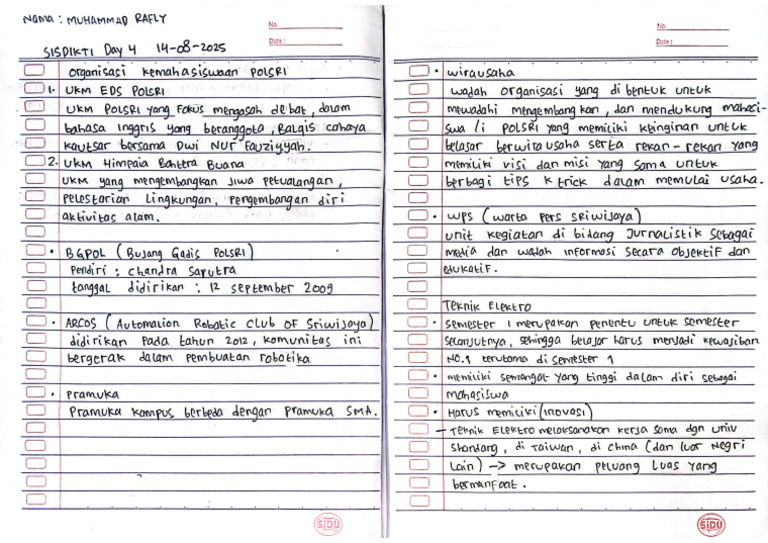 Nama : MUHAMMAD RAFLY
No.
Date :
SISDIKTI Day 4 14-08-2025
organisasi kemahasiswaan POLSRI
1. UKM EDS POLSRI
UKM POLSRI yang Fokus mengasah debat, dalam
bahasa inggris yang beranggota, Balgis cahaya
kautsar bersama Dwi Nur Fauziyyah.
2. UKM Himpala Bahtera Buana
UKM yang mengembangkan jiwa petualangan,
pelestarian lingkungan, pengembangan diri
aktivitas alam.
• BGPOL (Bujang Gadis POLSRI)
Pendiri : Chandra Saputra
tanggal didirikan : 12 september 2009
• ARCOS (Automation Robotic Club OF Sriwijaya)
didirikan pada tahun 2012, komunitas ini
bergerak dalam pembuatan robotika
• Pramuka
Pramuka kampus berbeda dengan pramuka SMA.
SIDU
No.
Date :
• wirausaha
wadah organisasi yang dibentuk untuk
mewadahi mengembangkan, dan mendukung mahasi-
swa/i POLSRI yang memiliki keinginan untuk
belajar berwirausaha serta rekan-rekan yang
memiliki visi dan misi yang sama untuk
berbagi tips & trick dalam memulai usaha.
• WPS (warta pers sriwijaya)
unit kegiatan di bidang Jurnalistik sebagai
media dan wadah informasi secara objektif dan
edukatif.
Teknik Elektro
• semester 1 merupakan penentu untuk semester
selanjutnya, sehingga belajar harus menjadi kewajiban
No.1 terutama di semester 1
• memiliki semangat yang tinggi dalam diri sebagai
mahasiswa
• Harus memiliki (inovasi)
— Teknik Elektro melaksanakan kerja sama dgn univ
Shandang, di Taiwan, di China (dan luar Negri
Lain) —> merupakan peluang luas yang
bermanfaat.
SIDU